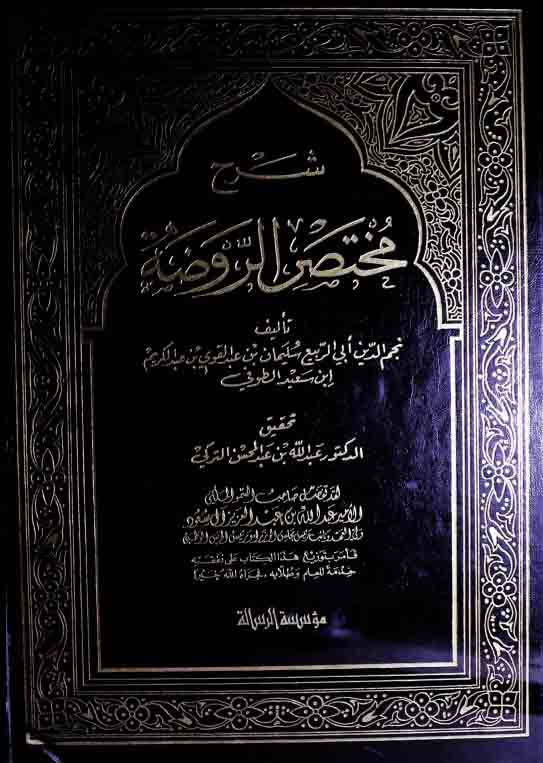 شرح
مختصر الروضة
تأليف
نجم الدين أبي الربيع سليمان بن عبد القوي بن عبد الكريم
ابن سعيد الطوفي
تحقيق
الدكتور عبد الله بن عبد المحسن التركي
لقد تفضل صاحب السمو الملكي
الأمير عبد الله بن عبد العزيز آل سعود
فأمر بتوزيع هذا الكتاب على نفقته
خدمة للعلم وطلابه، فجزاه الله خيراً
مؤسسة الرسالة